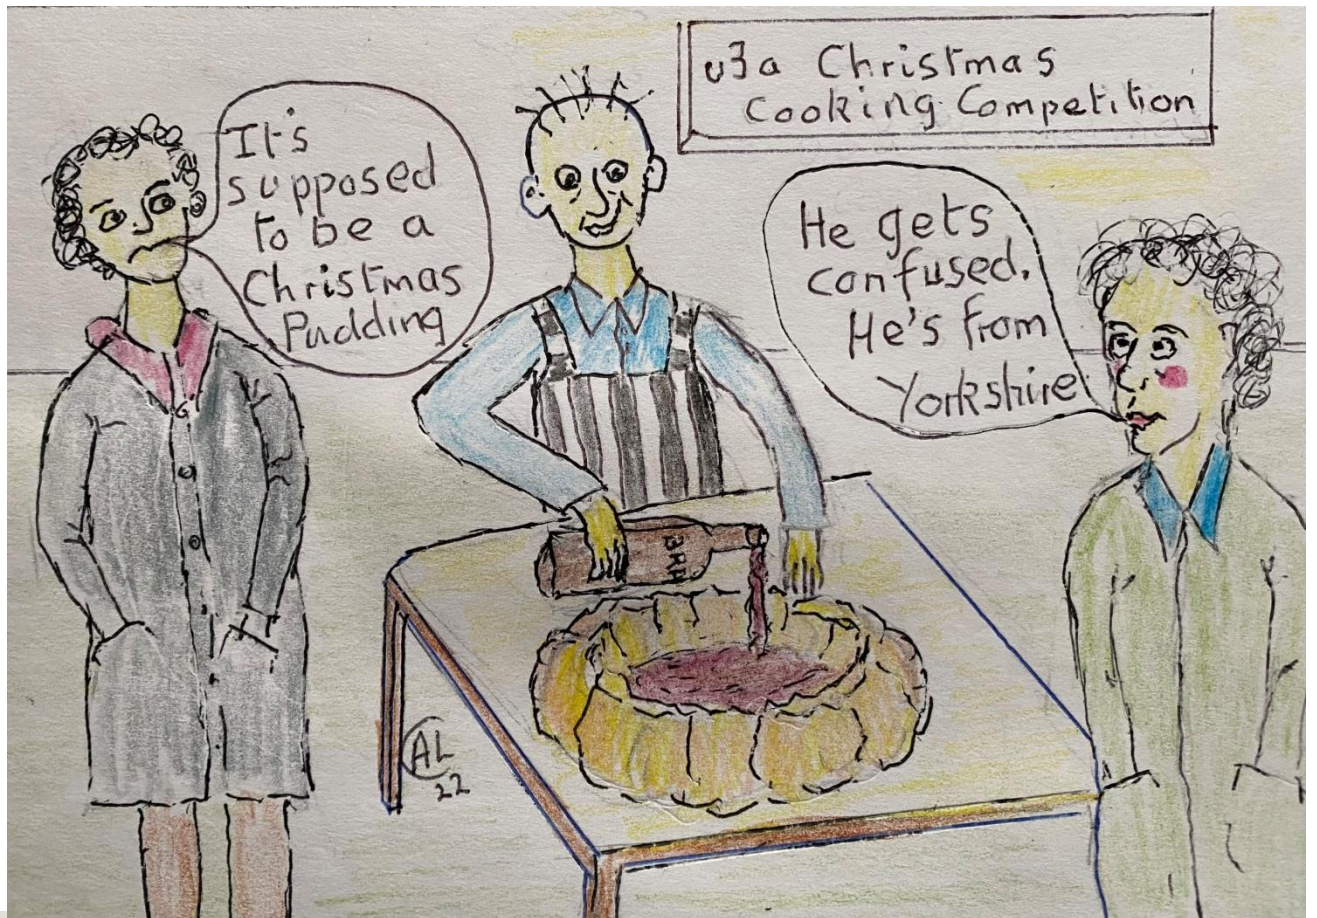 u3a Christmas
Cooking Competition
It's
supposed
to be a
Christmas
Pudding
He gets
confused.
He's from
Yorkshire
BRA
AL
22